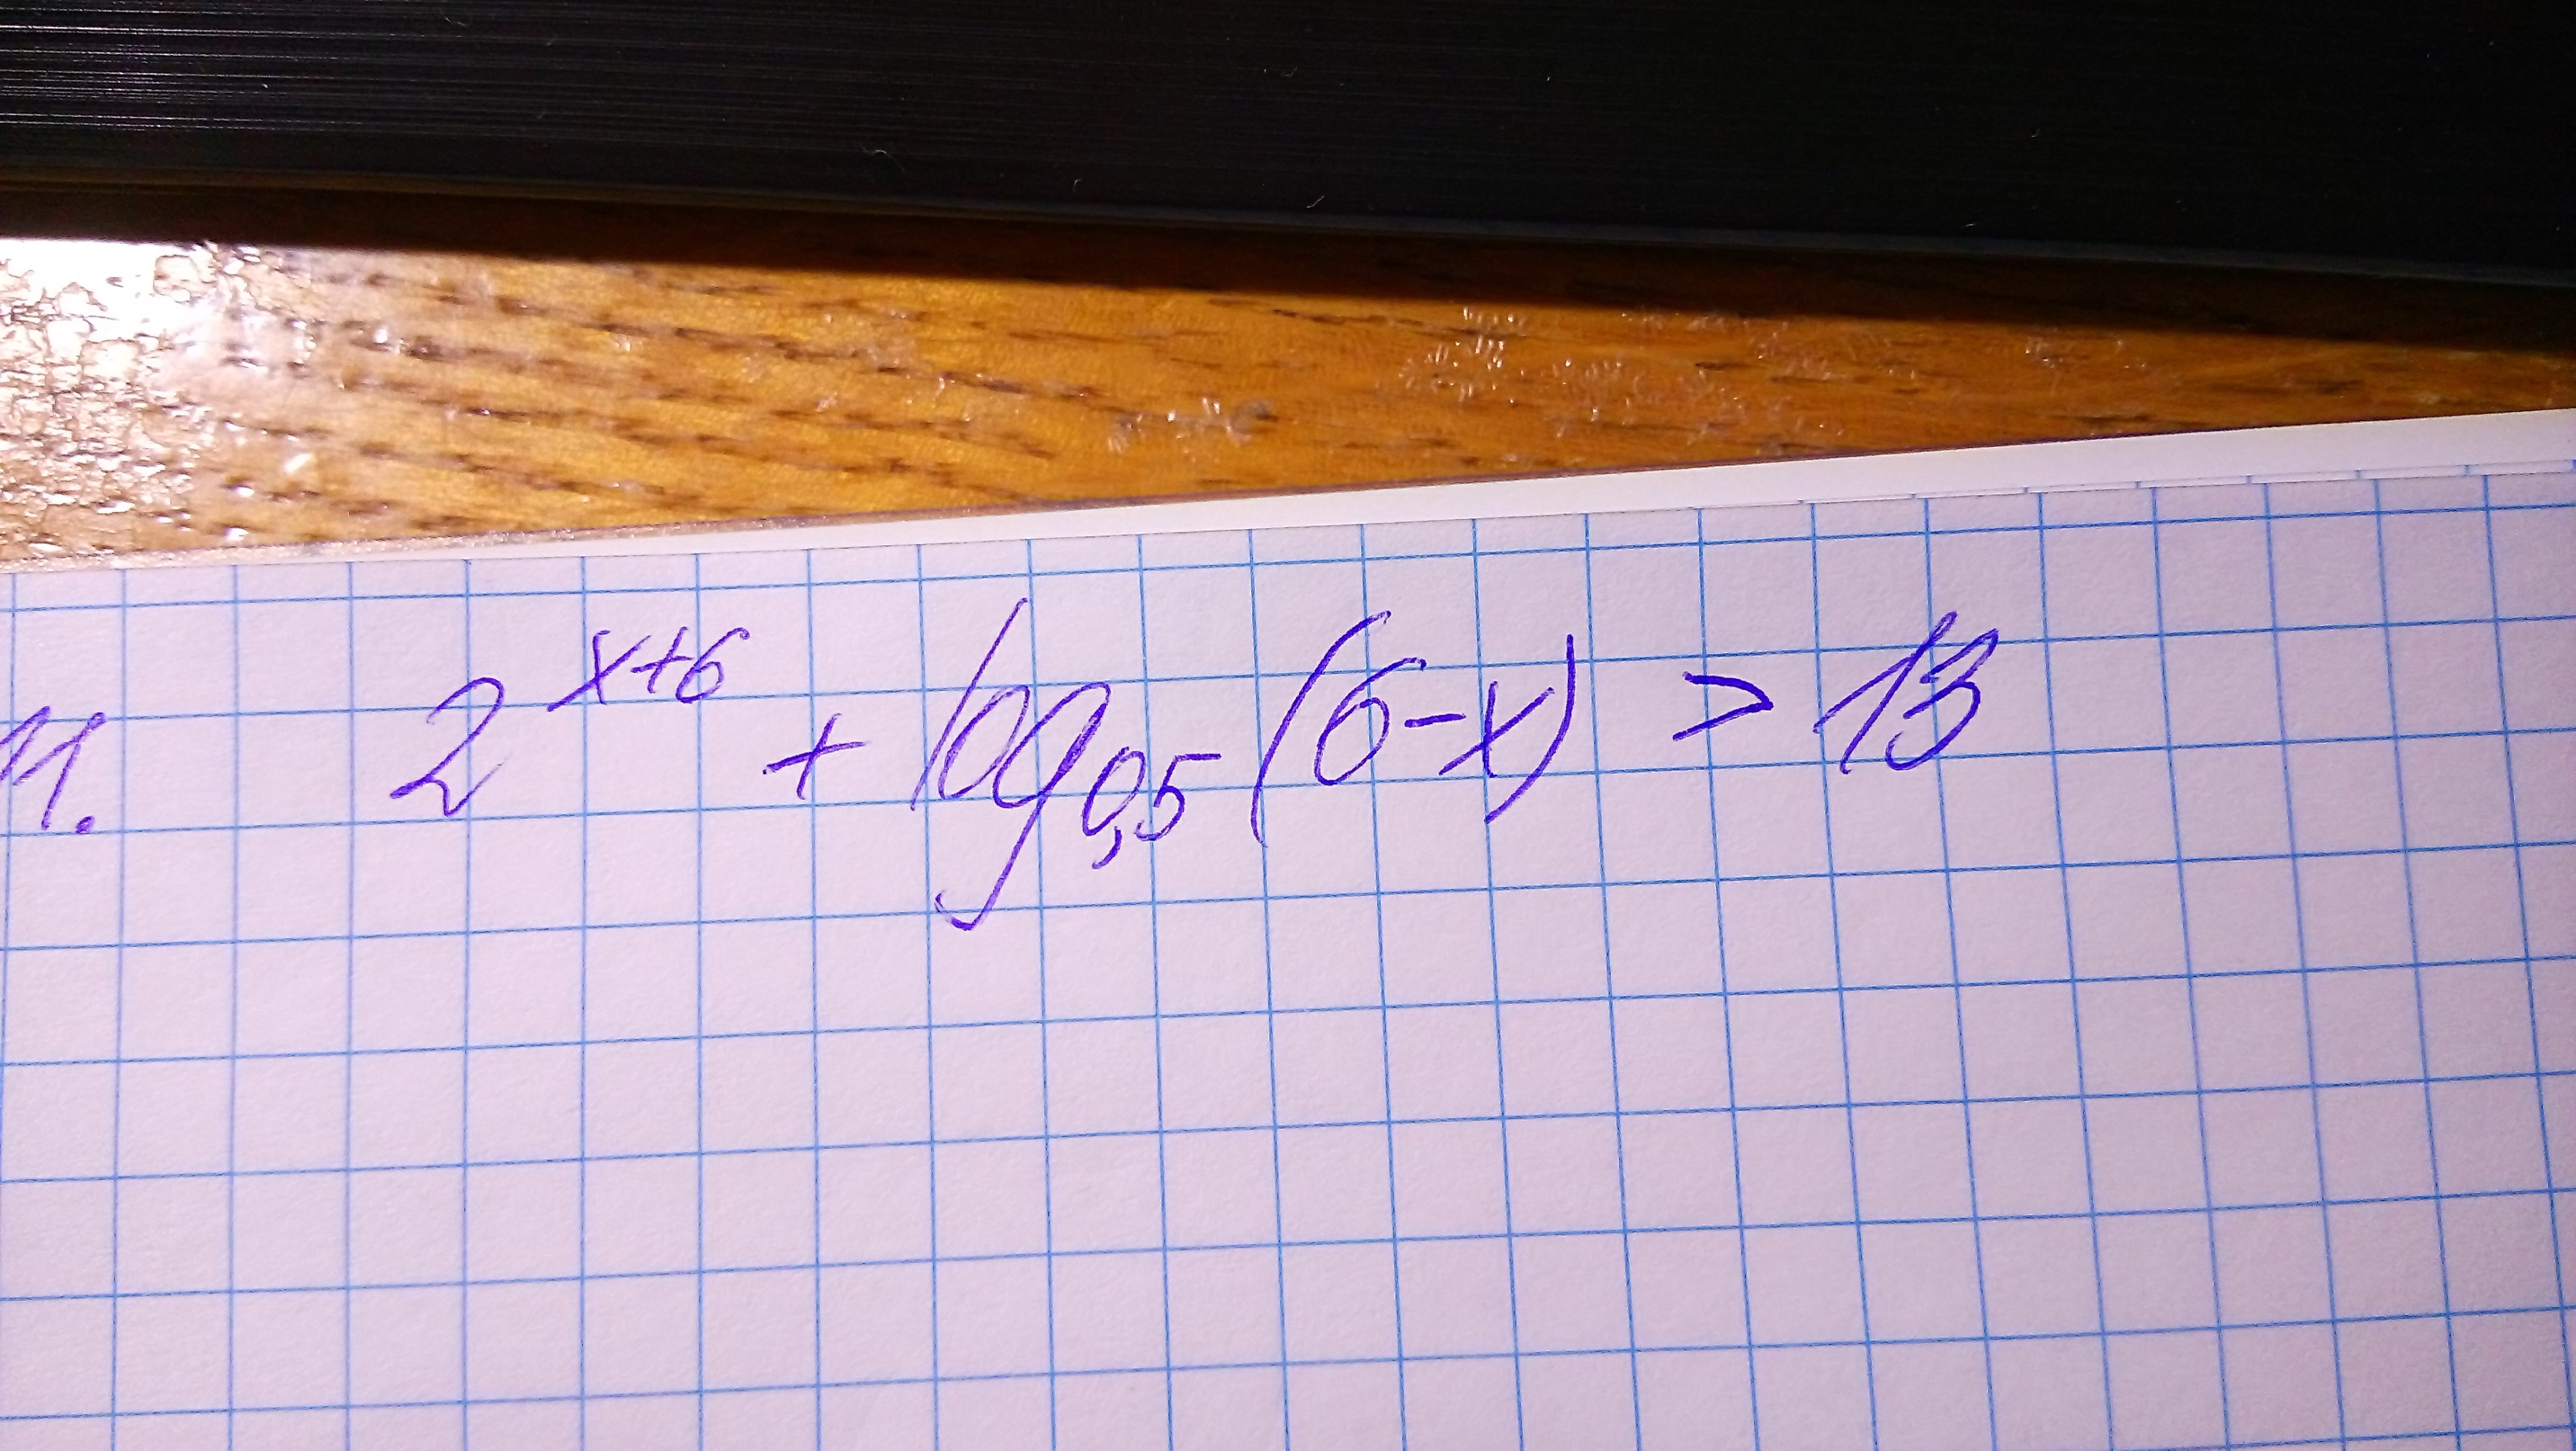 11. 2^{x+6} + log_{0,5} (6-x) > 13